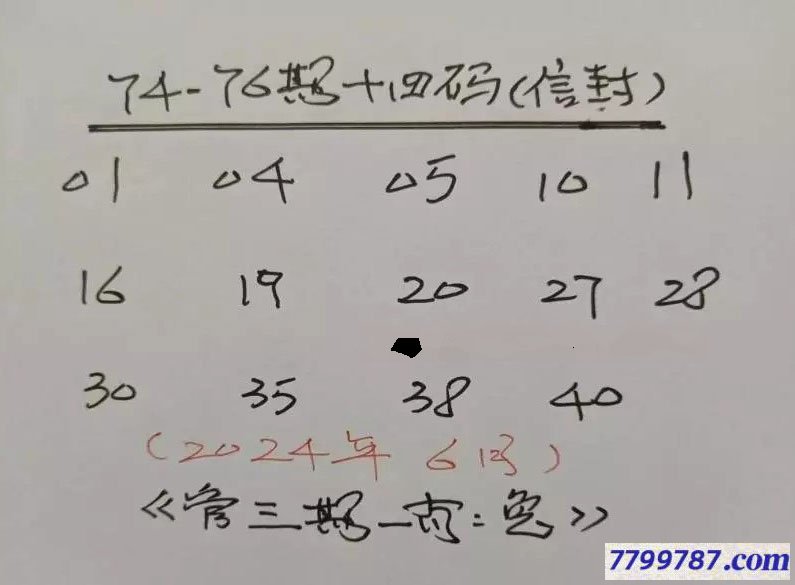 74-76期十四码(信封)
01 04 05 10 11
16 19 20 27 28
30 35 38 40
(2024年6月)
《管三期一肖:兔》
7799787.com